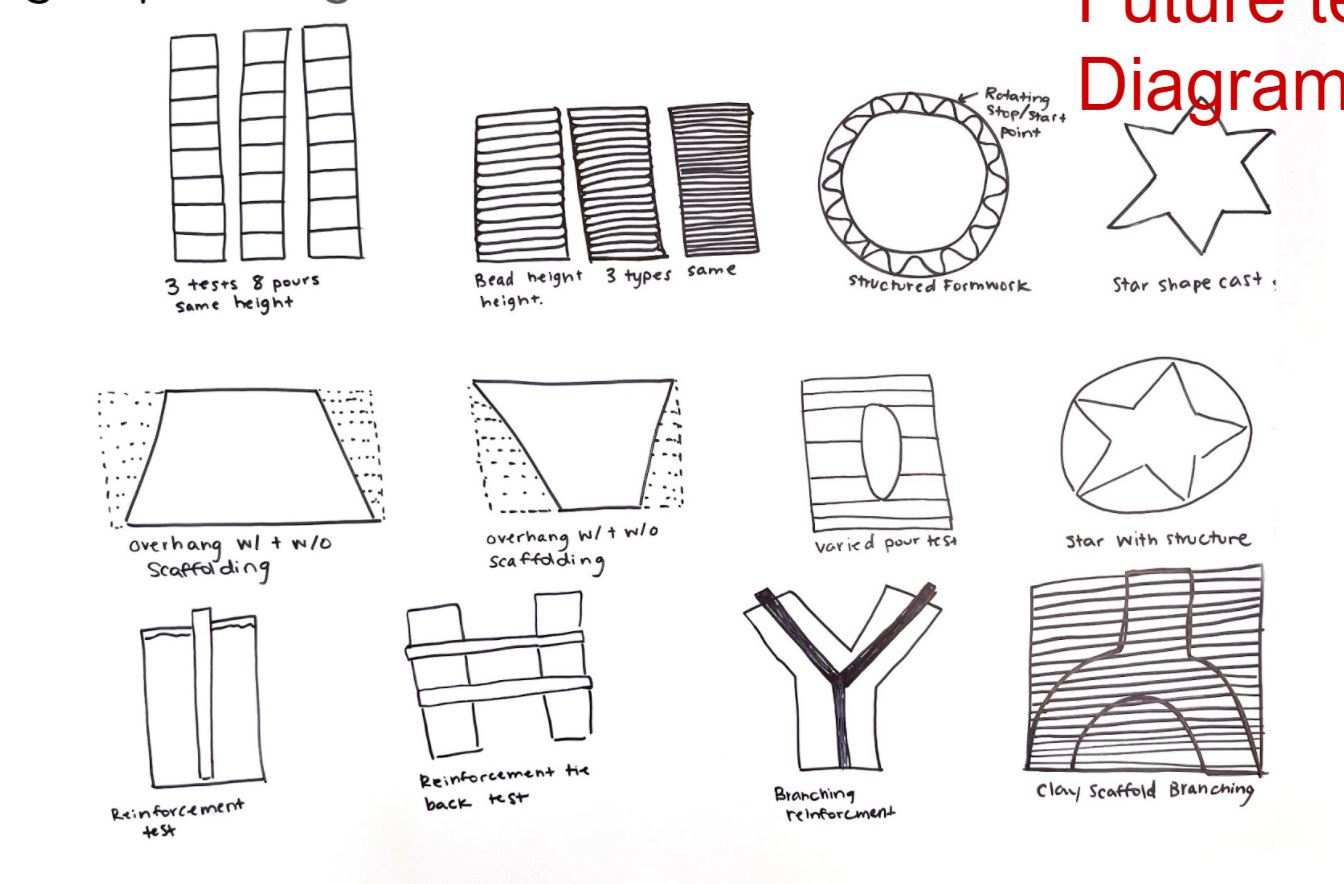 Future te
Diagram
Rotating
Stop/start
point
3 tests 8 pours
same height
Bead height 3 types same
height.
Structured Formwork
Star shape cast
overhang w/ + w/o
Scaffolding
overhang w/ + w/o
scaffolding
varied pour test
Star with structure
Reinforcement
test
Reinforcement tie
back test
Branching
reinforcement
Clay Scaffold Branching